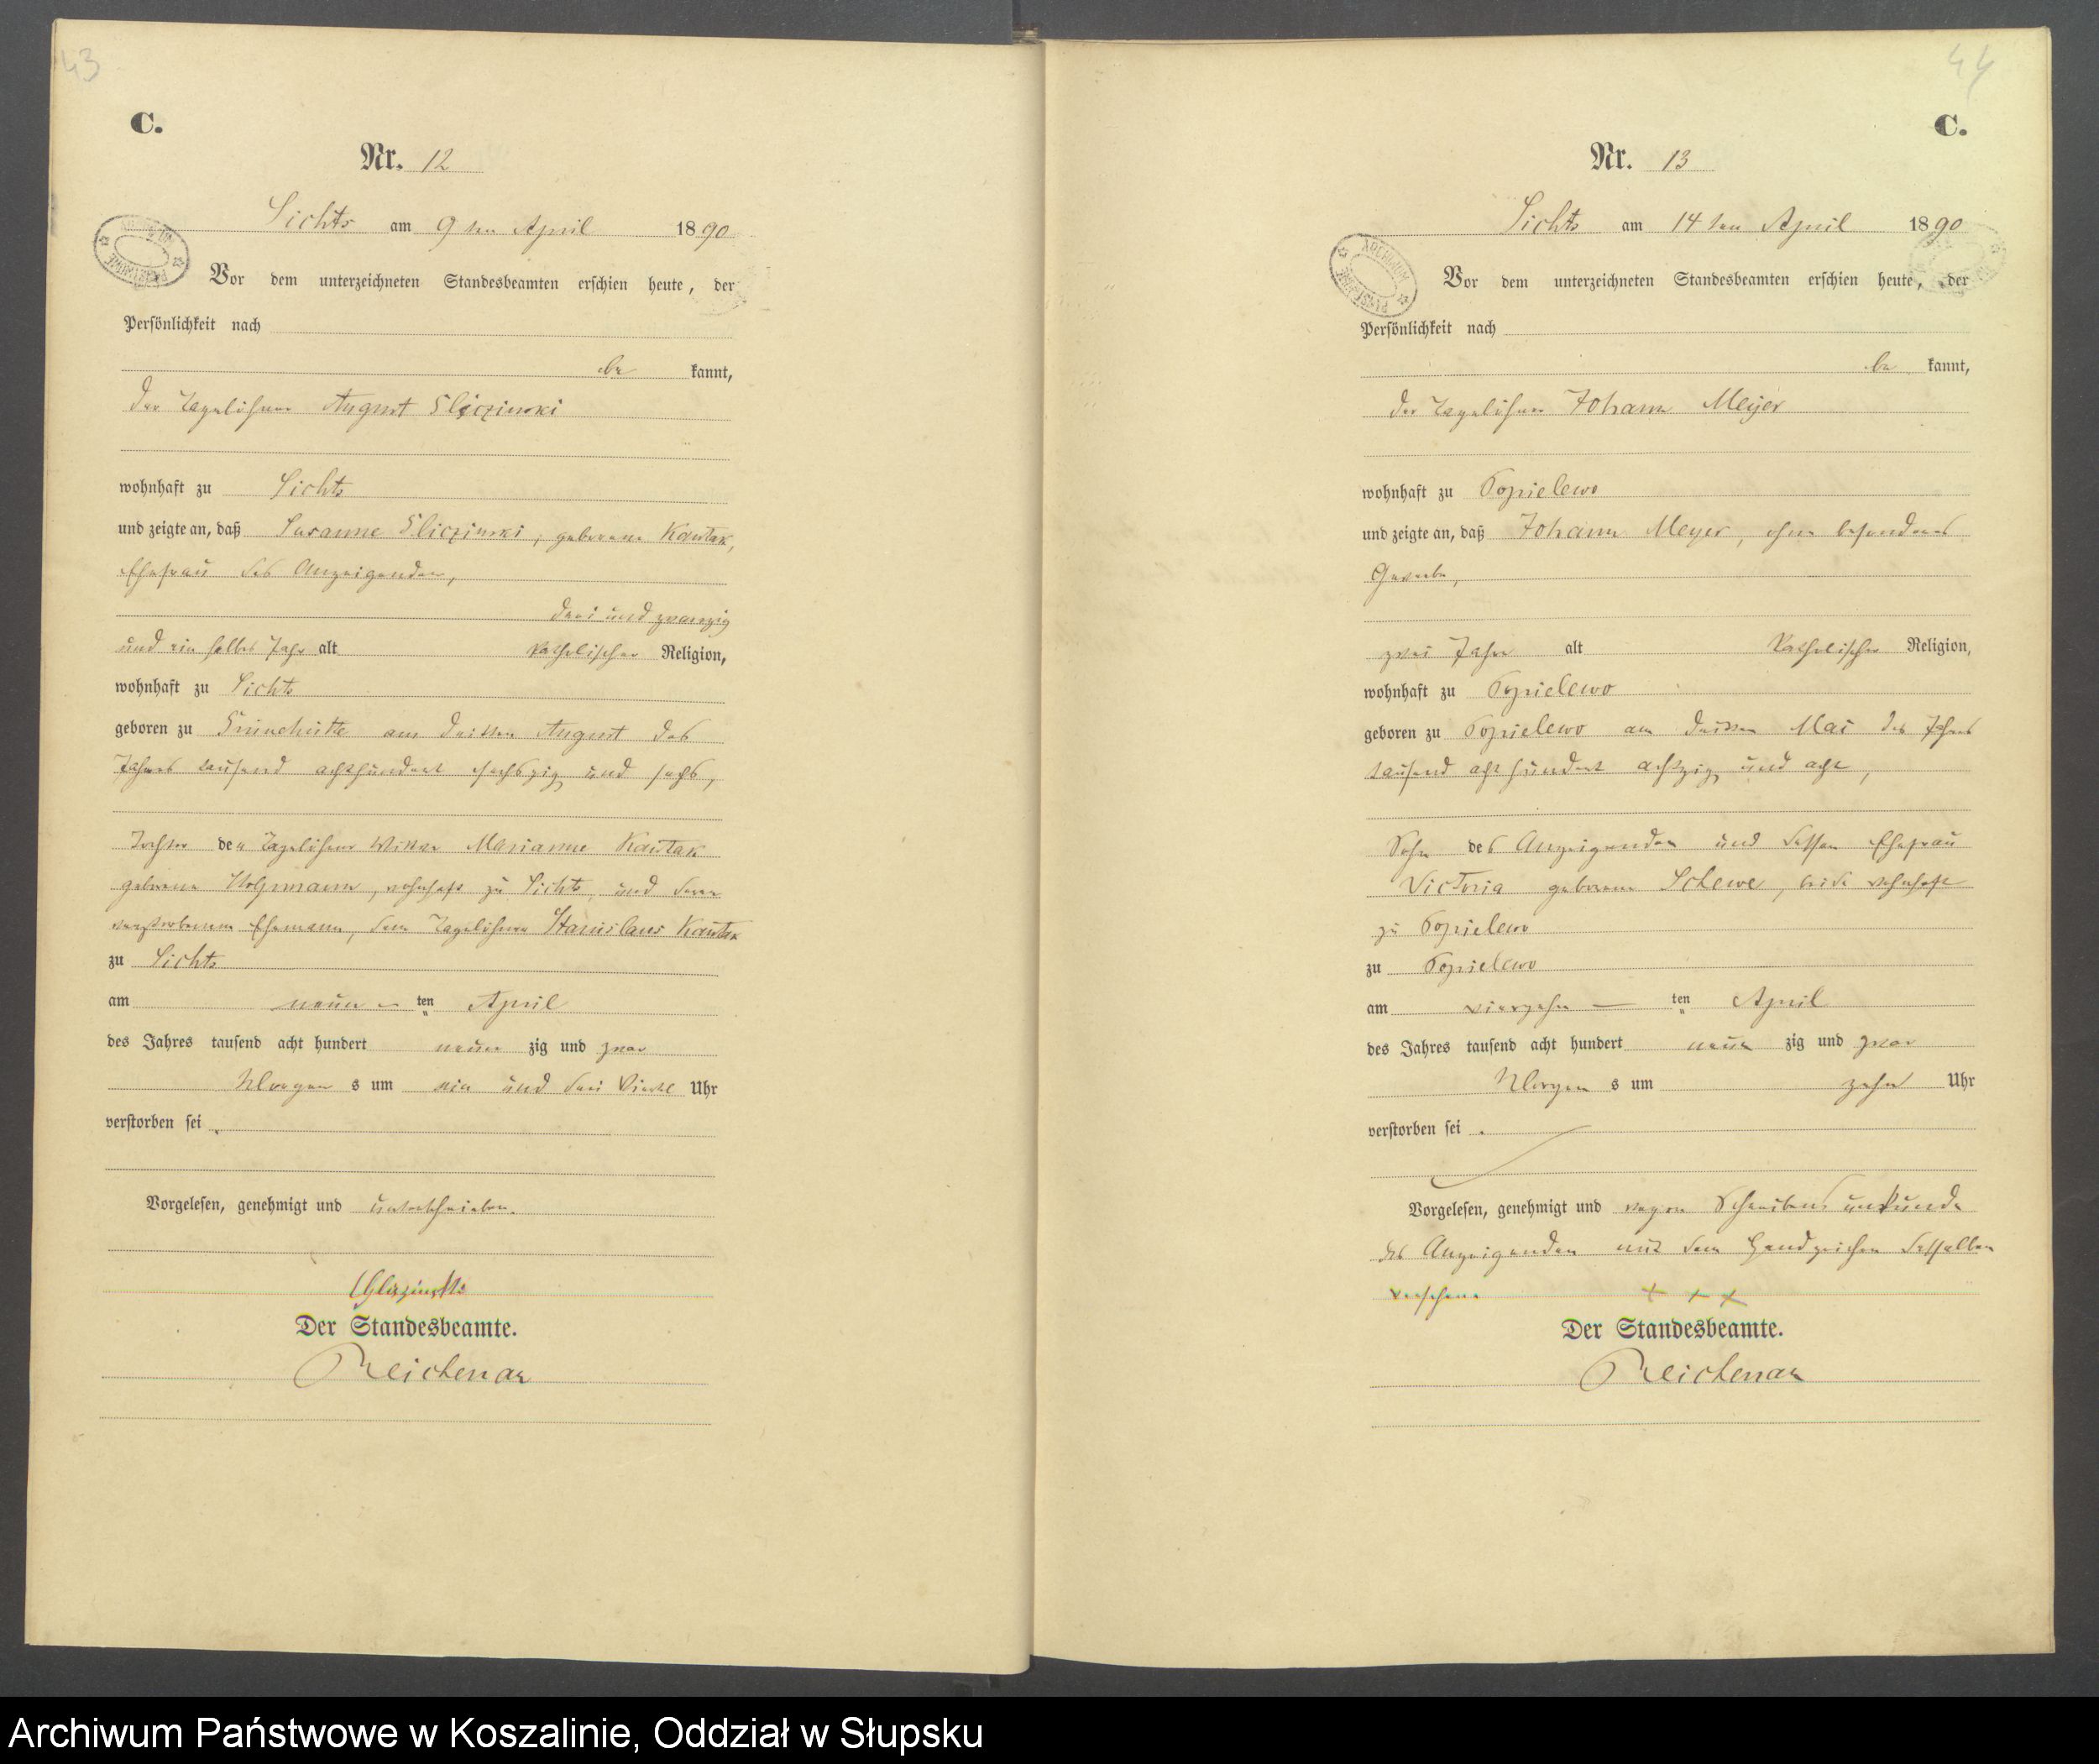 43
C.
Nr. 12
Lichts am 9ten April 1890
Vor dem unterzeichneten Standesbeamten erschien heute, der
Persönlichkeit nach
be kannt,
der Tagelöhner August
wohnhaft zu Lichts
und zeigte an, daß Susanne geborene Kautak,
Ehefrau des Anzeigenden,
drei und zwanzig
und ein halbes Jahr alt katholischer Religion,
wohnhaft zu Lichts
geboren zu am dritten August des
Jahres tausend achthundert sechszig und sechs,
Tochter der Tagelöhner Wittwe Marianne Kautak
geborene wohnhaft zu Lichts, und deren
verstorbenen Ehemann, dem Tagelöhner Stanislaus Kautak
zu Lichts
am neun ten April
des Jahres tausend acht hundert neun zig und zwar
Morgen s um ein und drei Viertel Uhr
verstorben sei.
Vorgelesen, genehmigt und unterschrieben.
Der Standesbeamte.
Reichenau
44
C.
Nr. 13
Lichts am 14ten April 1890
ARCHIWUM
Vor dem unterzeichneten Standesbeamten erschien heute, der
Persönlichkeit nach
be kannt,
der Tagelöhner Johann Meyer
wohnhaft zu Popielewo
und zeigte an, daß Johann Meyer, ohne besonderes
Gewerbe,
zwei Jahre alt katholischer Religion,
wohnhaft zu Popielewo
geboren zu Popielewo am dritten Mai des Jahres
tausend acht hundert achtzig und acht,
Sohn des Anzeigenden und dessen Ehefrau
Victoria geborene Schewe, beide wohnhaft
zu Popielewo
zu Popielewo
am vierzehn — ten April
des Jahres tausend acht hundert neun zig und zwar
Morgen s um zehn Uhr
verstorben sei.
Vorgelesen, genehmigt und wegen Schreibens unkunde
des Anzeigenden mit dem Handzeichen desselben
versehen. + + +
Der Standesbeamte.
Reichenau
Archiwum Państwowe w Koszalinie, Oddział w Słupsku